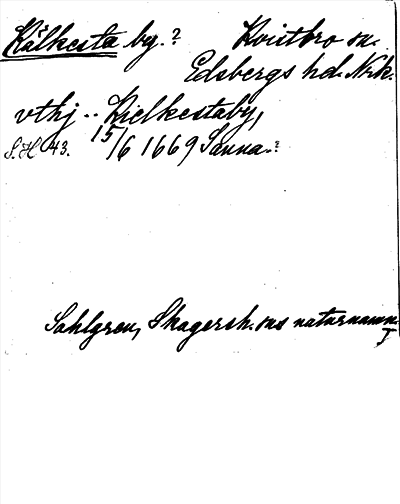 Kälkesta by.? Kvistbro sn.
Edsbergs hd. Nrk.
vthj .. Kielkestaby,
S.H. 43. 15/6 1669 Sanna.?
Sahlgren, Skagersh. sns naturnamn
I